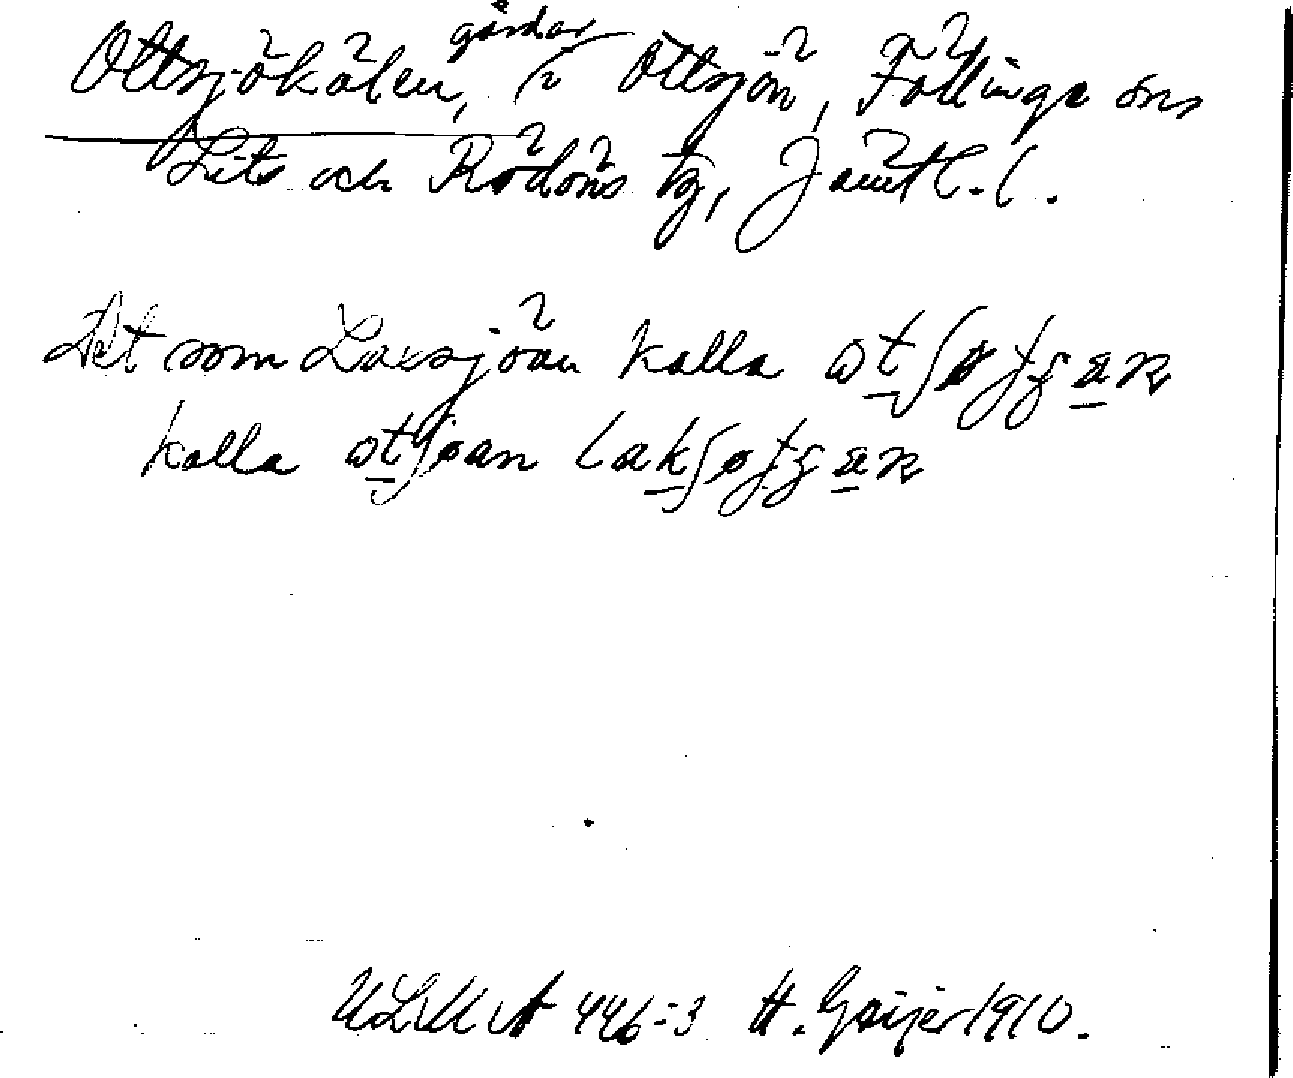 Ottsjökälen, gårdar i Ottsjön, Föllinge sns
Lits och Rödöns tg, Jämtl. l.
Det som Laxsjöan kalla
kalla
ULMA 446:3 H. Geijer 1910.